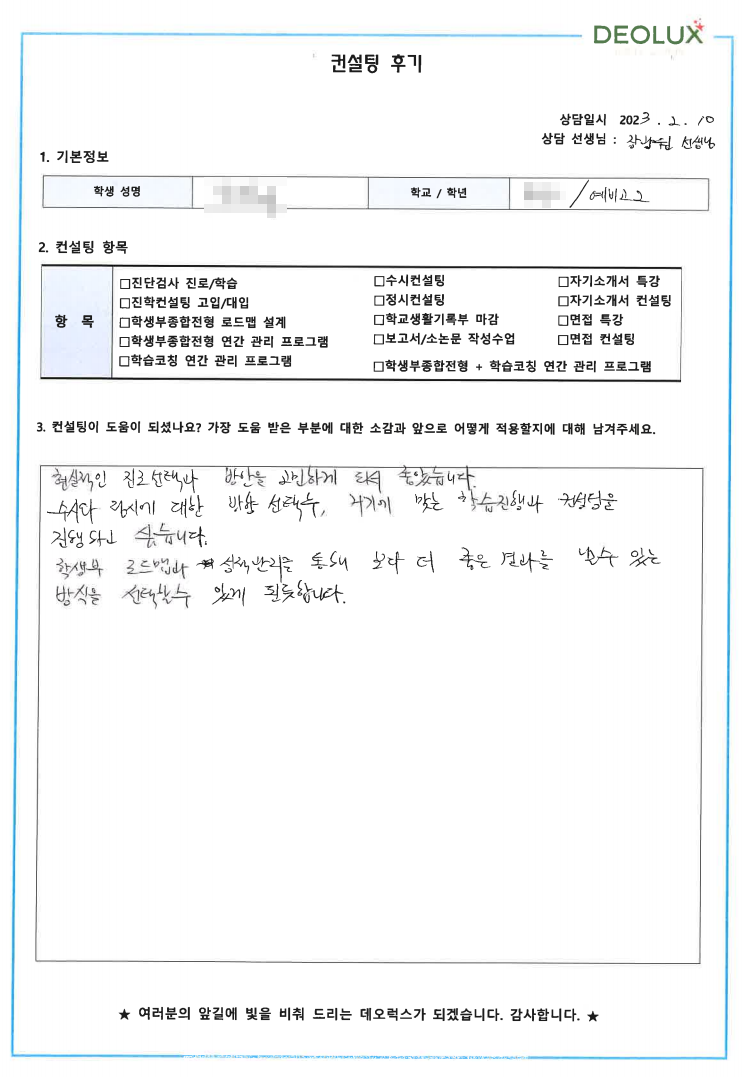 DEOLUX
컨설팅 후기
상담일시 2023. 2. 10
상담 선생님 : 선생님
1. 기본정보
학생 성명
학교 / 학년 / 예비고2
2. 컨설팅 항목
항 목
□진단검사 진로/학습 □수시컨설팅 □자기소개서 특강
□진학컨설팅 고입/대입 □정시컨설팅 □자기소개서 컨설팅
□학생부종합전형 로드맵 설계 □학교생활기록부 마감 □면접 특강
□학생부종합전형 연간 관리 프로그램 □보고서/소논문 작성수업 □면접 컨설팅
□학습코칭 연간 관리 프로그램 □학생부종합전형 + 학습코칭 연간 관리 프로그램
3. 컨설팅이 도움이 되셨나요? 가장 도움 받은 부분에 대한 소감과 앞으로 어떻게 적용할지에 대해 남겨주세요.
현실적인 진로선택과 방안을 고민하게 되어 좋았습니다.
대한 방향 선택후, 거기에 맞는 학습진행과 컨설팅을
진행하고 싶습니다.
학생부 로드맵과 성적관리를 통해 보다 더 좋은 결과를 낼수 있는
방식을 선택할수 있게 된듯합니다.
★ 여러분의 앞길에 빛을 비춰 드리는 데오럭스가 되겠습니다. 감사합니다. ★